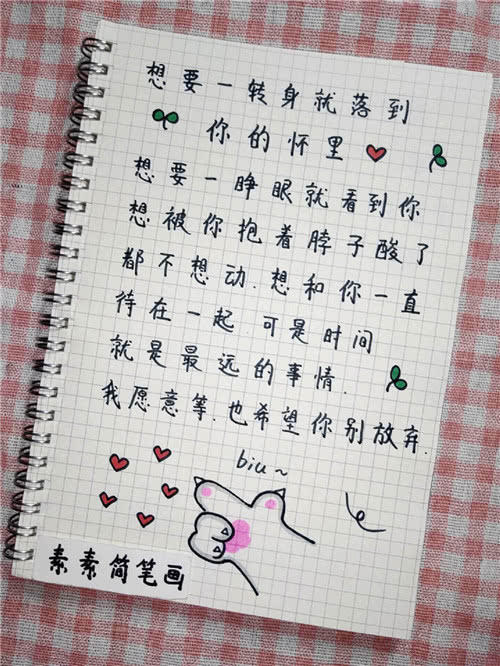 想要一转身就落到
你的怀里
想要一睁眼就看到你
想被你抱着脖子酸了
都不想动.想和你一直
待在一起.可是时间
就是最远的事情.
我愿意等.也希望你别放弃.
biu~
素素简笔画